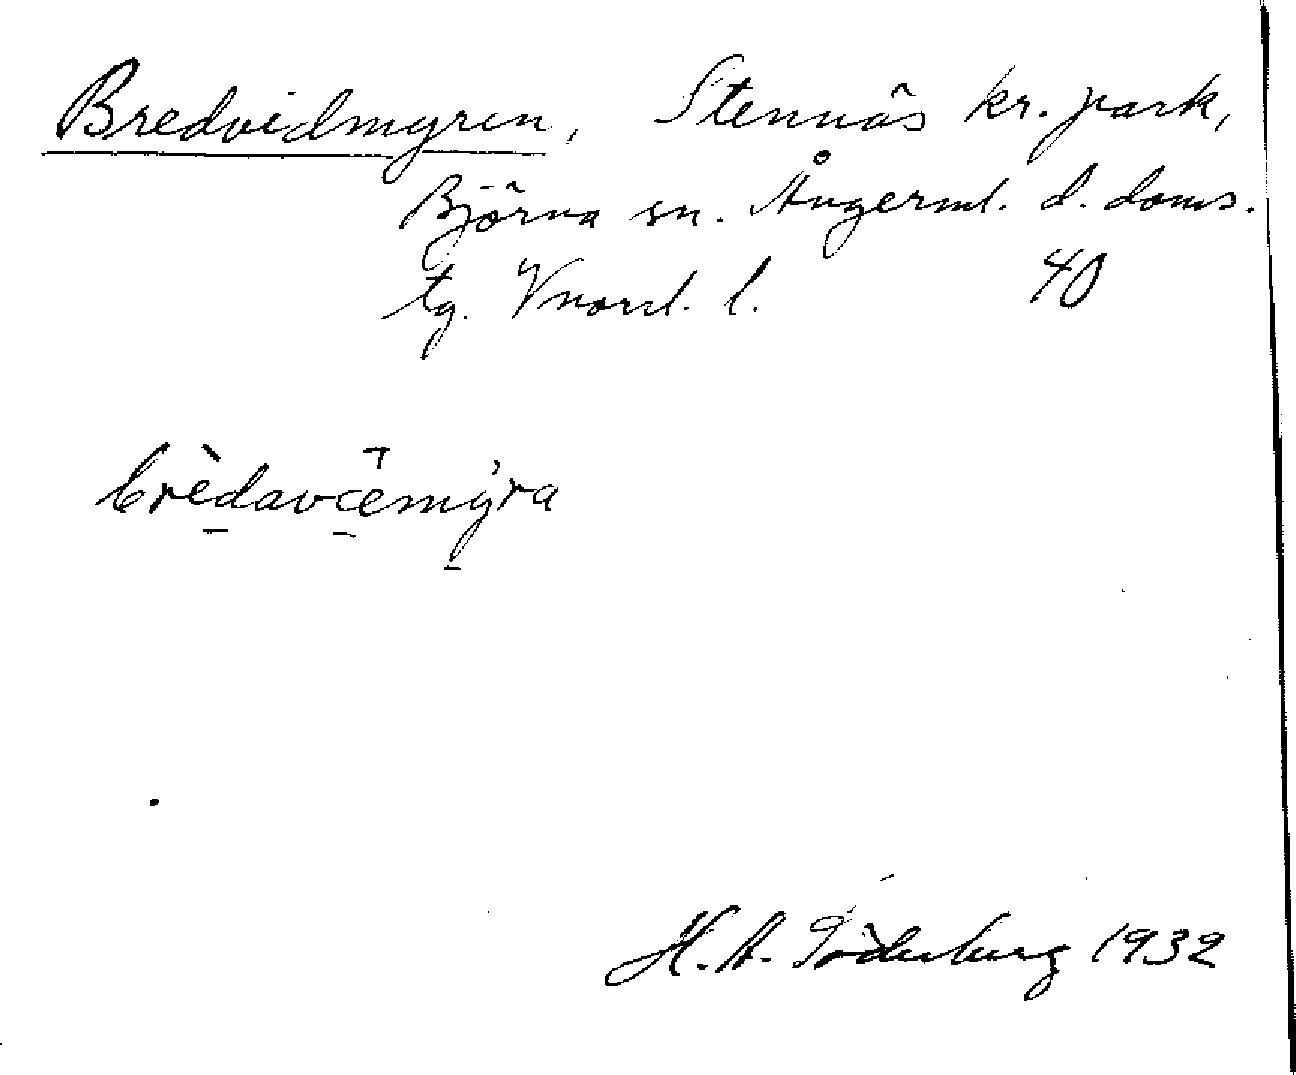 Bredvidmyren, Stennäs kr. park,
Björna sn. Ångerml. d. doms.
tg. Vnorrl. l. 40
brèdavemyra
H. A. Söderberg 1932